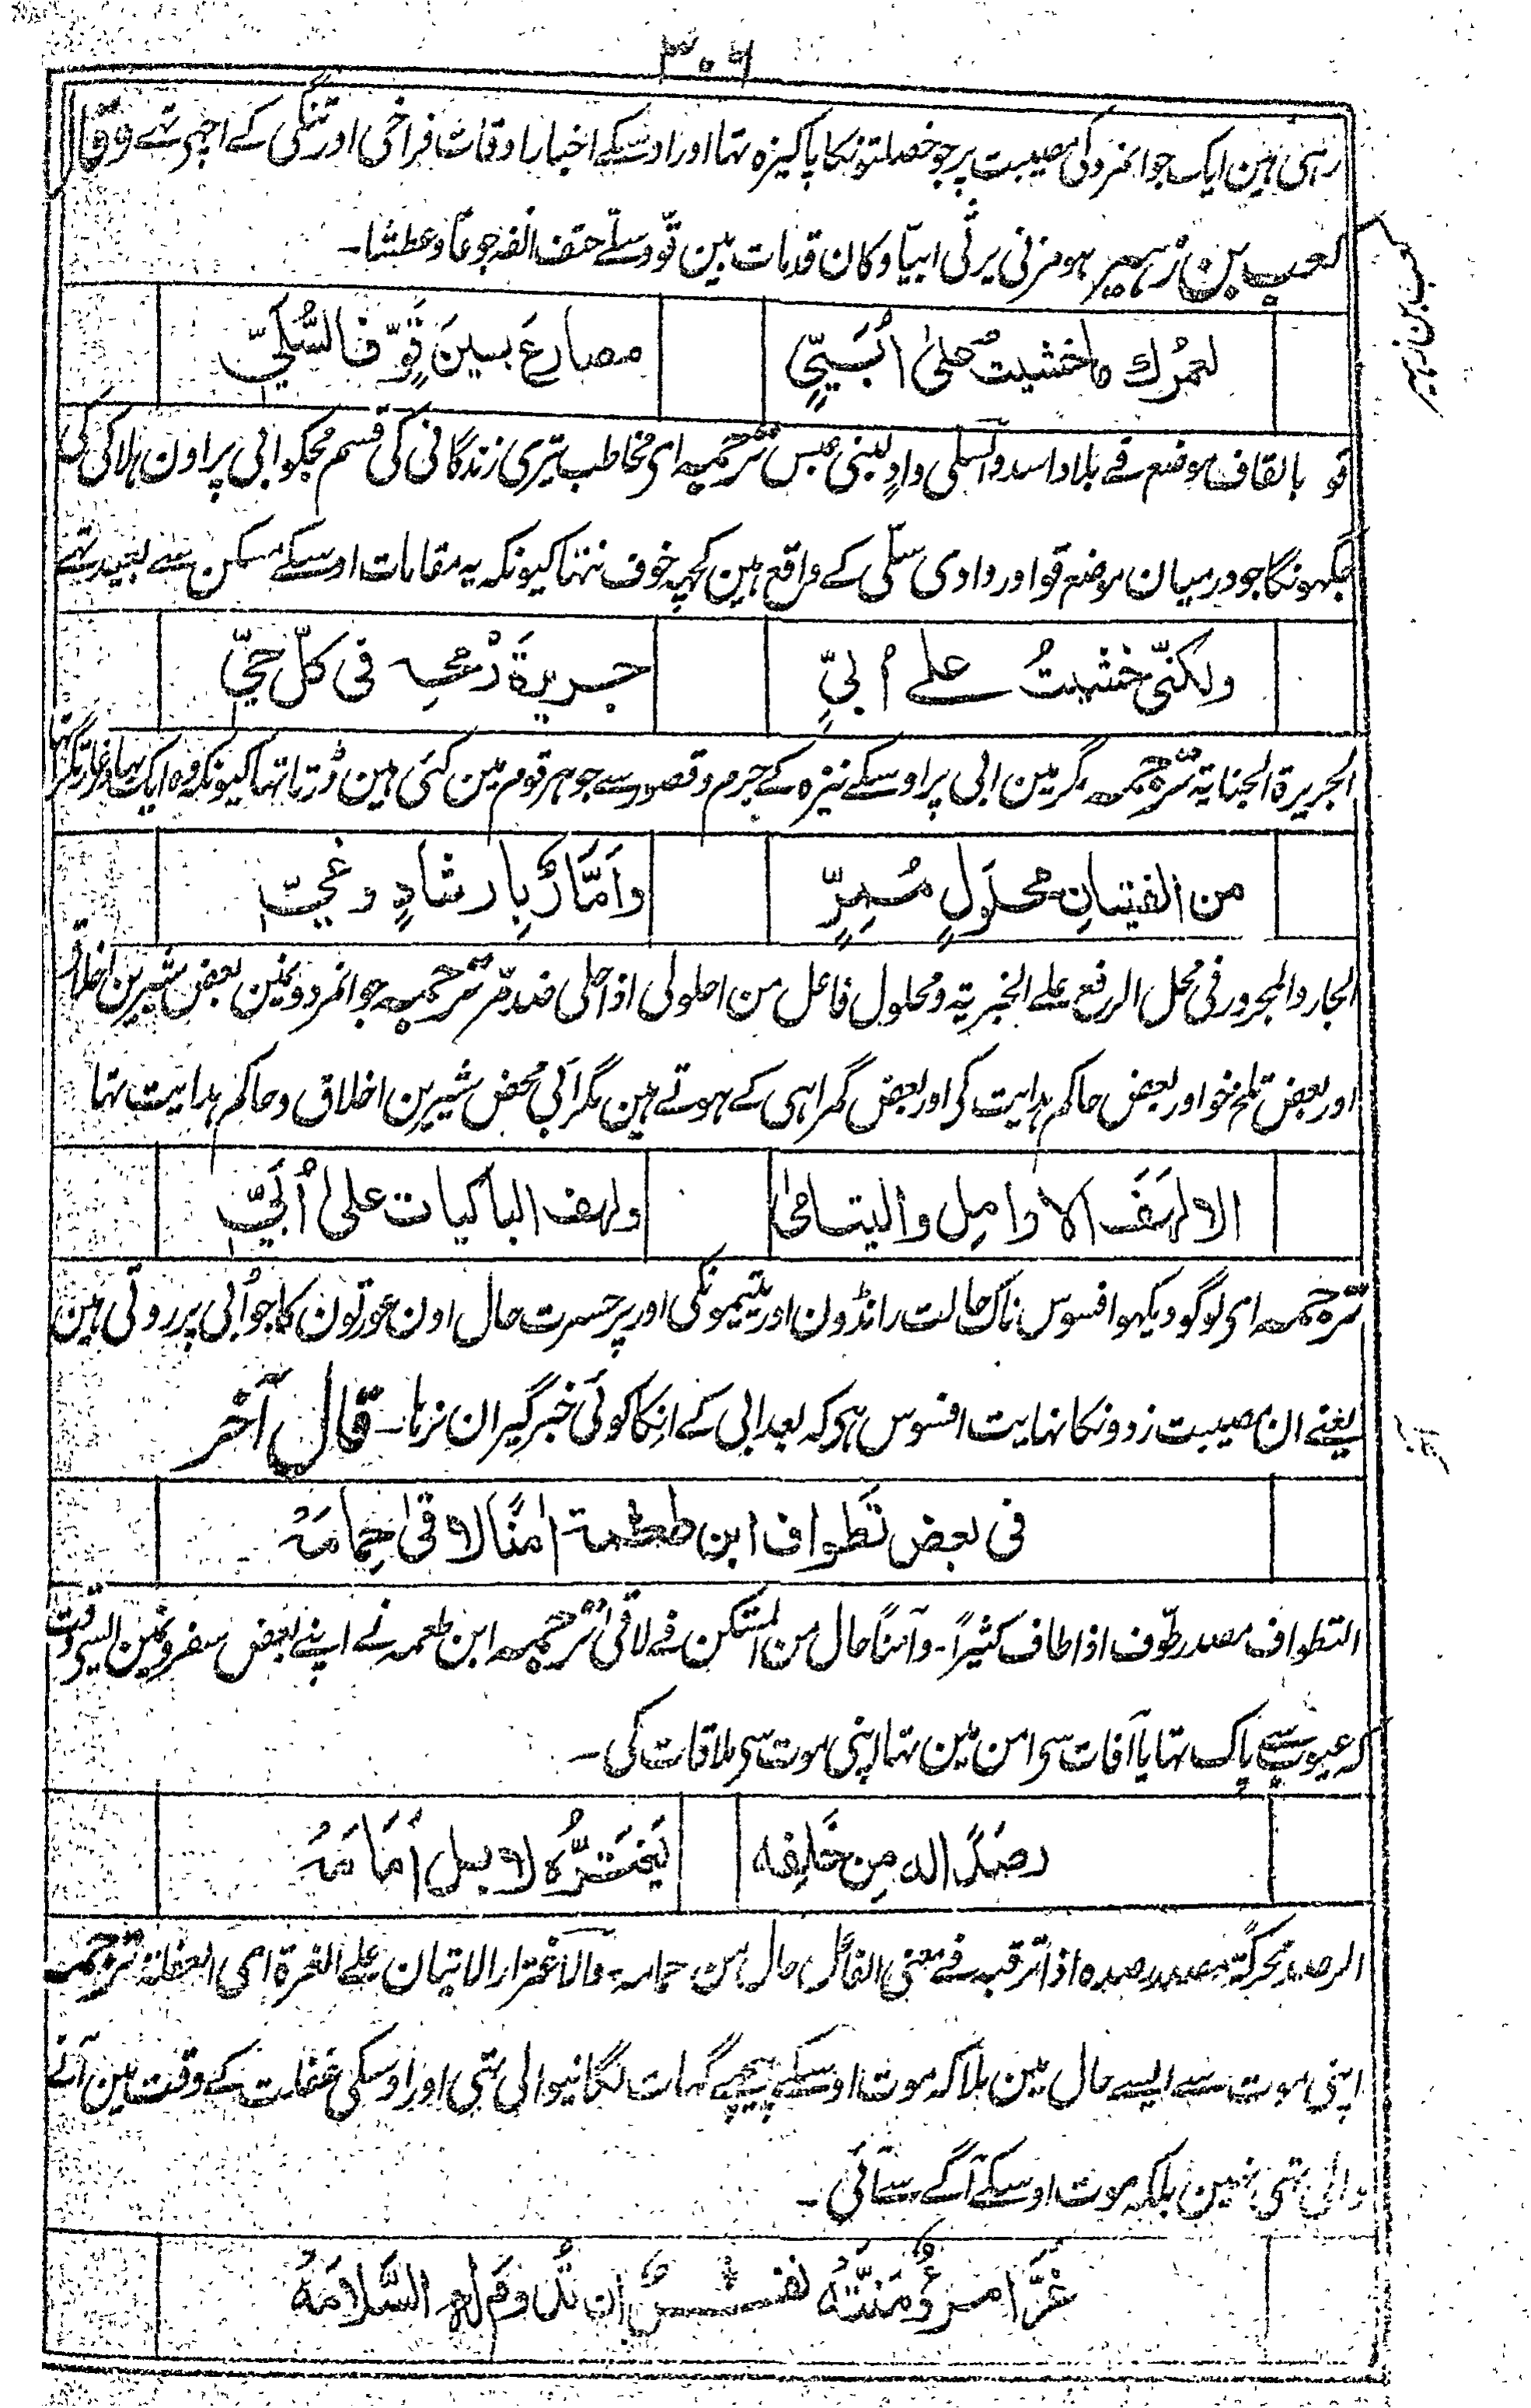 ۳۰۶
رہی ہین ایک جوانمرد کی مصیبت پر جو خصلتونکا پاکیزہ تہا اور اوسکے اخبار اوقات فراخی اور تنگی کے اچہے تہے وقال
کعب بن زہیر ہو مزنی یرثی ابیّا وکان قدمات بین قوّ وسلّے حتف انفہ جوعًا وعطشا۔
کعب بن زہیر
لعمرُك ما خشيتُ على اُبَيٍّ
مصارعَ بين قَوٍّ فالسُّلَيّ
قو بالقاف موضع فے بلاد اسد والسلی وادٍ لبنی عبس ترجمہ ای مخاطب تیری زندگانی کی قسم مجکو ابی پر اون ہلاکی کی
جگہونکا جو درمیان موضع قو اور وادی سلّی کے واقع ہین کچہہ خوف نتہا کیونکہ یہ مقامات اوسکے مسکن سے بعید تہے
ولكنّى خشيتُ على اُبىٍّ
جريرةَ رُمحه فى كلّ حيّ
الجریرة الجنایة ترجمہ مگر مین ابی پر اوسکے نیزہ کے جرم وقصور سے جو ہر قوم مین کئی ہین ڈرتا تہا کیونکہ وہ ایک بہادر غارتگر تہا
من الفتيانِ محلَولٍ مُمِرٍّ
واَمَّارٌ بارشادٍ وغىّ
الجار والمجرور فی محل الرفع علے الخبریة ومحلول فاعل من احلولی اذا حلی ضد مرّ ترجمہ جوانمردونمین بعض شیرین اخلاق
اور بعض تلخ خو اور بعض حاکم ہدایت کی اور بعض گمراہی کے ہوتے ہین مگر اُبی محض شیرین اخلاق وحاکم ہدایت تہا
الا لهفَ الارامل واليتامىٰ
ولهف الباكيات على اُبَيّ
ترجمہ ای لوگو دیکہو افسوس ناک حالت رانڈون اور یتیمونکی اور پر حسرت حال اون عورتون کا جو اُبی پر روتی ہین
یعنے ان مصیبت زدونکا نہایت افسوس ہی کہ بعد ابی کے انکا کوئی خبر گیران نرہا۔ قال آخر
فى بعض تَطواف ابن طعمة امنًا لاقىٰ حِمامَهٗ
التطواف مصدر طوّف اذا طاف کثیرًا۔ وآمنًا حال من المستکن فے لاقیٰ ترجمہ ابن طعمہ نے اپنے بعض سفرونمین ایسے وقت
کہ عیوب سے پاک تہا یا آفات سی امن مین تہا اپنی موت سی ملاقات کی۔
رصدًا له مِن خَلفِه
يَغتَرُّه لا بل اَمامَهٗ
الرصد محرکًة مصدر رصدہ اذا ترقبہ فے معنی الفاعل حال من حمامہ۔ والاغترار الاتیان علے الغرة ای الغفلة ترجمہ
اپنی موت سے ایسے حال مین ملا کہ موت اوسکے پیچہے گہات لگانیوالی تہی اور اوسکی غفلت کے وقت مین آنے
والی تہی نہین بلکہ موت اوسکے آگے سے آئی۔
غَرَّ امرَءً مَنَّتهُ نفسٌ ان تدومَ له السَّلامَهٗ